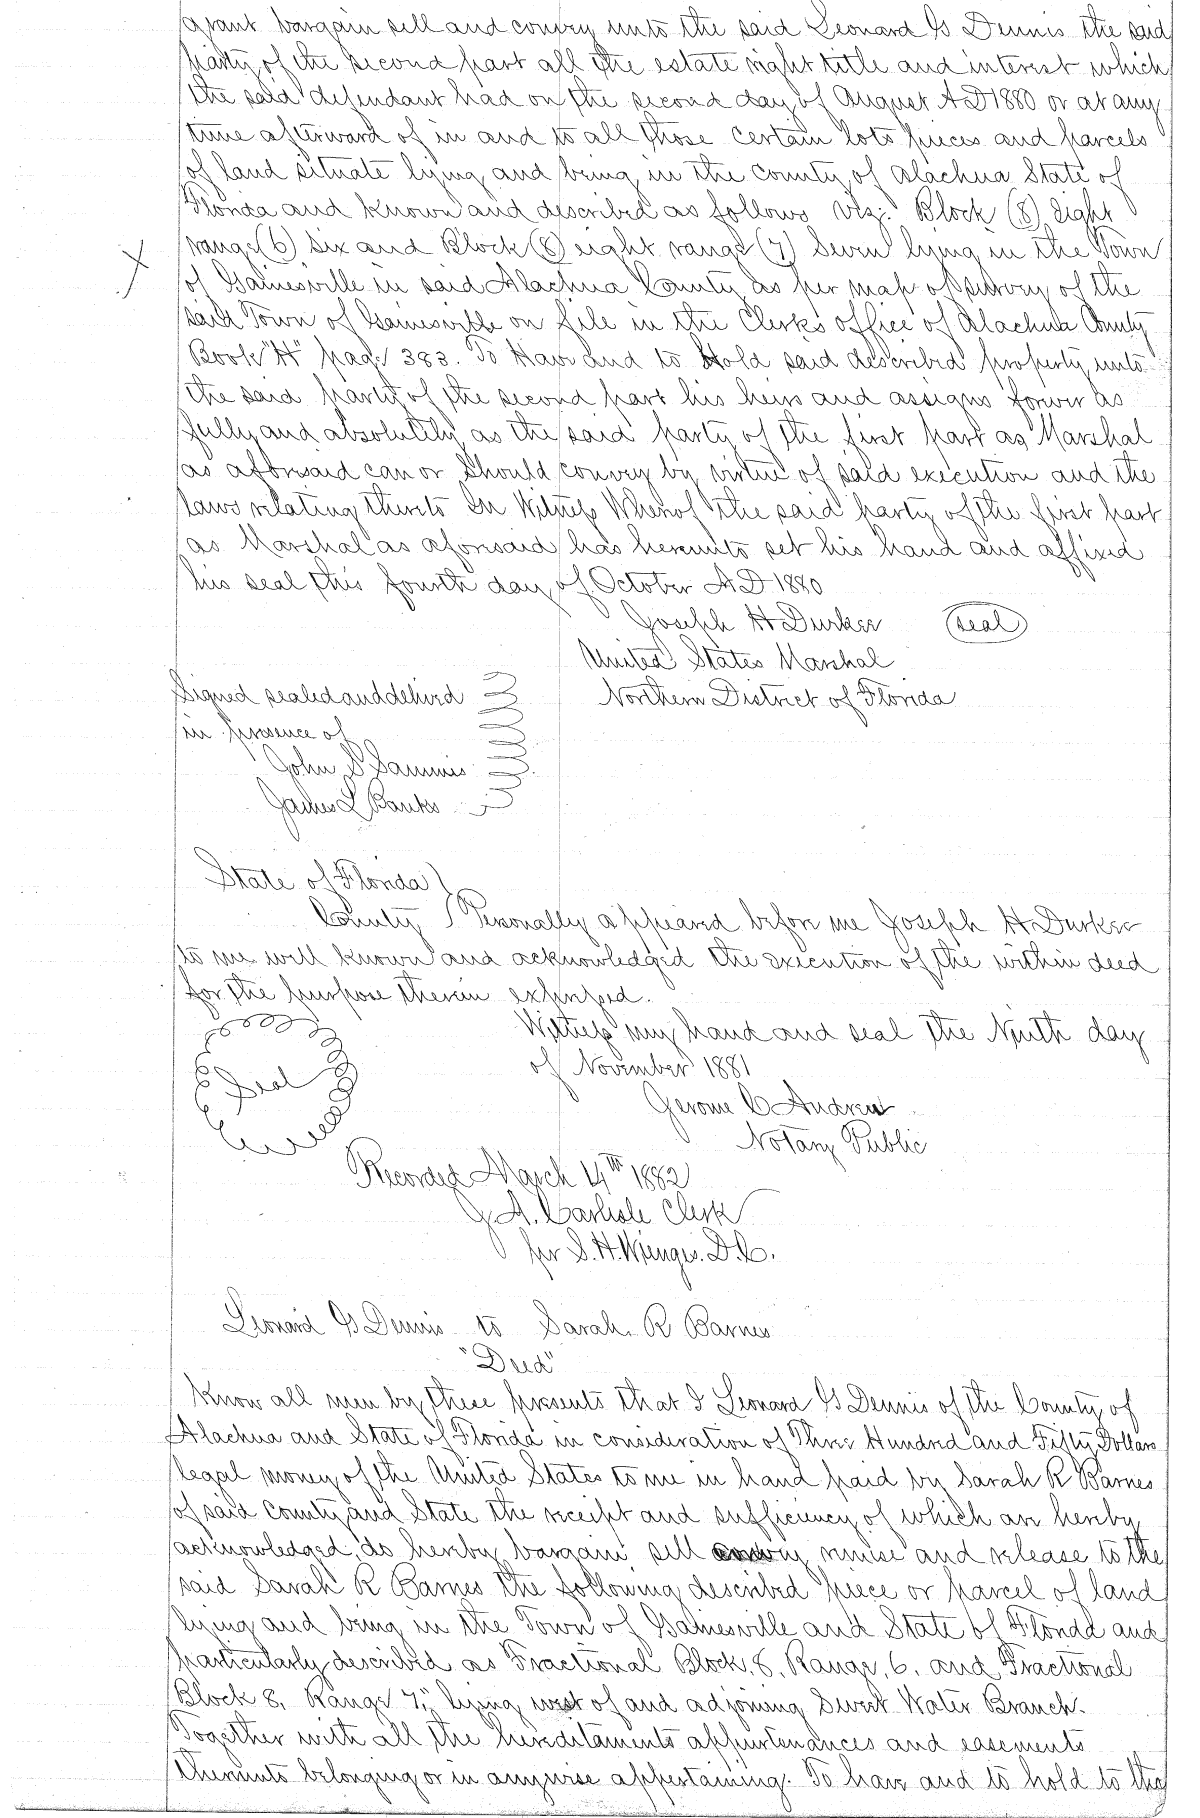 grant bargain sell and convey unto the said Leonard G Dennis the said
party of the second part all the estate right title and interest which
the said defendant had on the second day of August A D 1880 or at any
time afterward of in and to all those certain lots pieces and parcels
of land situate lying and being in the county of Alachua State of
Florida and known and described as follows viz: Block (8) Eight
range (6) Six and Block (8) eight range (7) Seven lying in the Town
of Gainesville in said Alachua County as per map of survey of the
said Town of Gainesville on file in the Clerks office of Alachua County
Book "H" page 383. To Have and to Hold said described property unto
the said party of the second part his heirs and assigns forever as
fully and absolutely as the said party of the first part as Marshal
as aforesaid can or should convey by virtue of said execution and the
laws relating thereto In Witness Whereof the said party of the first part
as Marshal as aforesaid has hereunto set his hand and affixed
his seal this fourth day of October A D 1880
Joseph H Durkee (seal)
United States Marshal
Northern District of Florida
Signed sealed and delivred
in presence of
John S Sammis
James L Banks
State of Florida
County Personally appeared before me Joseph H Durkee
to me well known and acknowledged the execution of the within deed
for the purpose therein expressed.
Witness my hand and seal the Ninth day
of November 1881
Seal
Gerome C Andreu
Notary Public
Recorded March 14th 1882
J. A. Carlisle Clerk
per S. H. Wienges. D. C.
Leonard G Dennis to Sarah R Barnes
"Deed"
Know all men by these presents that I Leonard G Dennis of the County of
Alachua and State of Florida in consideration of Three Hundred and Fifty Dollars
legal money of the United States to me in hand paid by Sarah R Barnes
of said County and State the receipt and sufficiency of which are hereby
acknowledged, do hereby bargain, sell convey remise and release to the
said Sarah R Barnes the following described piece or parcel of land
lying and being in the Town of Gainesville and State of Florida and
particularly described as Fractional Block, 8, Range, 6, and Fractional
Block 8, Range 7," lying west of and adjoining Sweet Water Branch.
Together with all the hereditaments appurtenances and easements
thereunto belonging or in anywise appertaining. To have and to hold to the